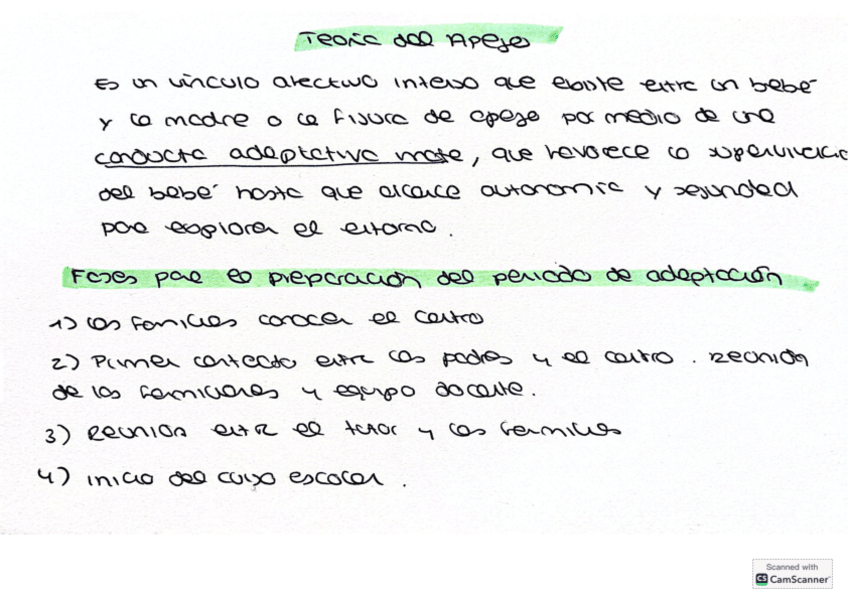 Teoría del Apego
Es un vínculo afectivo intenso que existe entre un bebé
y la madre o la figura de apego por medio de una
conducta adaptativa innata, que favorece la supervivencia
del bebé hasta que alcance autonomía y seguridad
para explorar el entorno.
Fases para la preparación del periodo de adaptación
1) Las familias conocen el centro
2) Primer contacto entre los padres y el centro. Reunión
de los familiares y equipo docente.
3) Reunión entre el tutor y las familias
4) inicio del curso escolar.
Scanned with
CS CamScanner